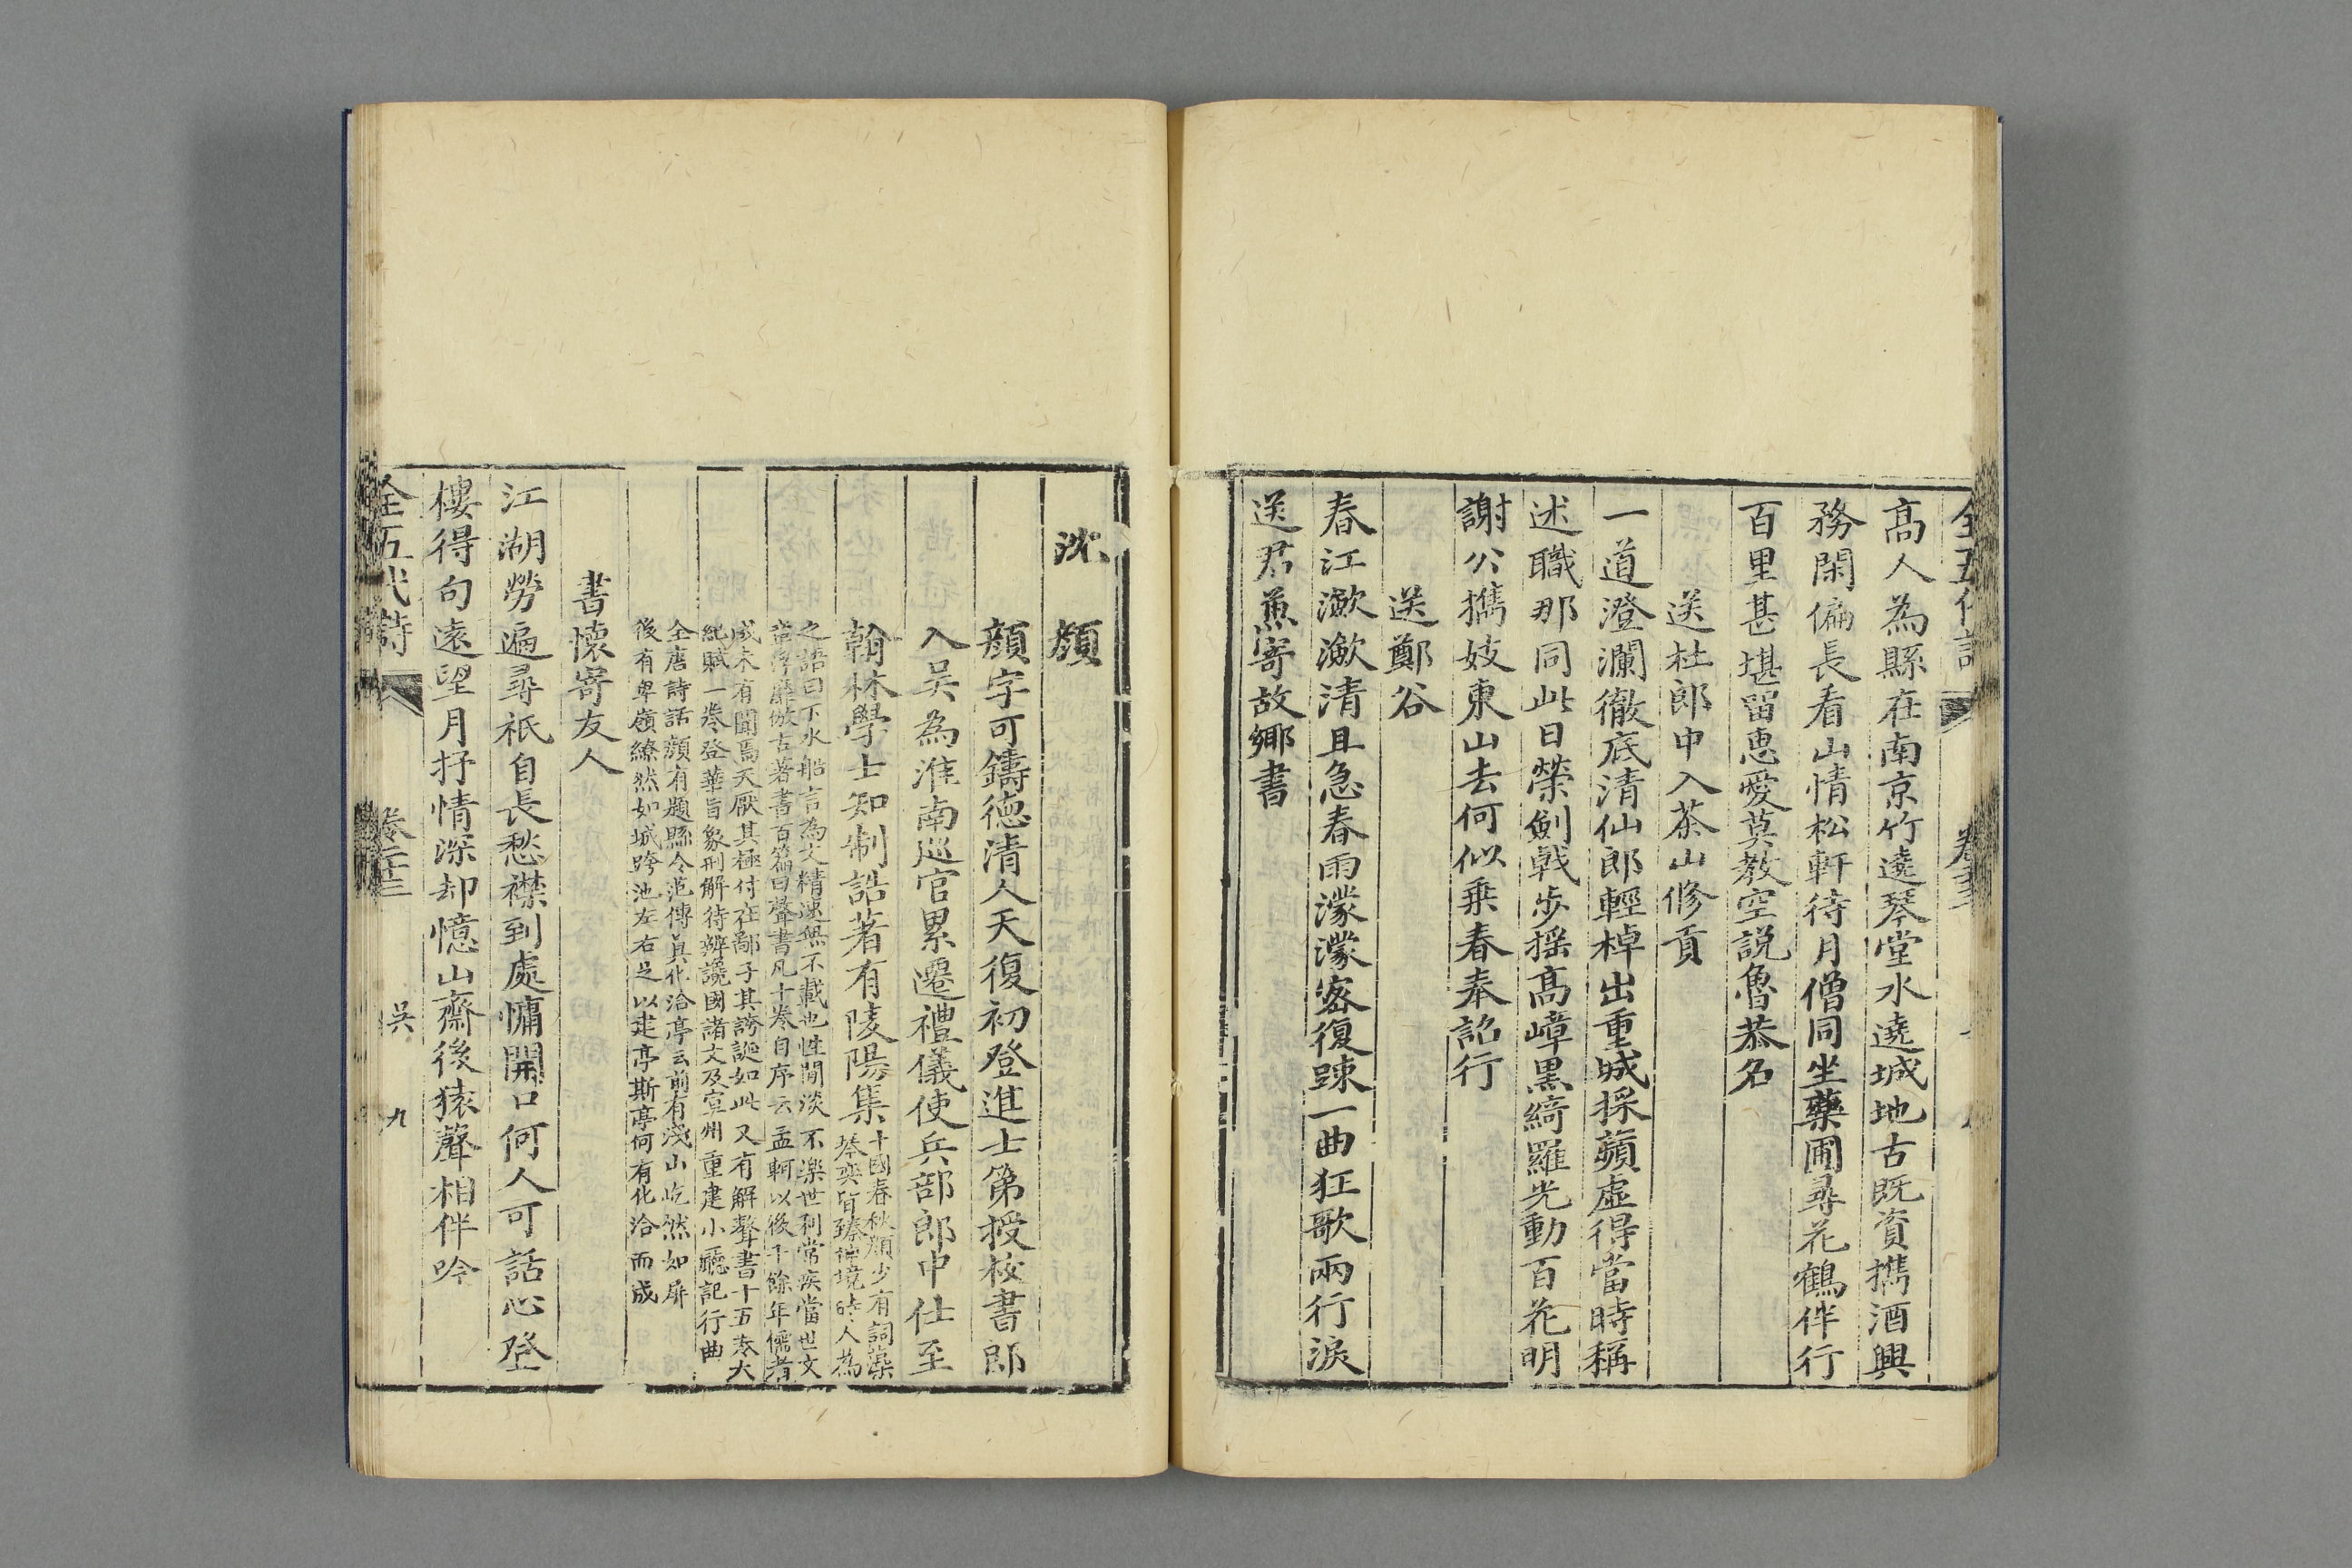 全五代詩
高人為縣在南京竹遶琴堂水遶城地古既資攜酒興
務閑偏長看山情松軒待月僧同坐藥圃尋花鶴伴行
百里甚堪留惠愛莫教空説魯恭名
送杜郎中入茶山修貢
一道澄瀾徹底清仙郎輕棹出重城採蘋虛得當時稱
述職那同此日榮劍戟步揺高嶂黒綺羅光動百花明
謝公攜妓東山去何似乗春奉詔行
送鄭谷
春江瀲瀲清且急春雨濛濛密復踈一曲狂歌兩行淚
送君兼寄故鄉書
沈顏
顏字可鑄德清人天復初登進士第授校書郎
入吳為淮南巡官累遷禮儀使兵部郎中仕至
翰林學士知制誥著有陵陽集
十國春秋顏少有詞藻
琴奕皆臻神境時人為
之語曰下水船言為文精速無不載也性閒淡不樂世利常疾當世文
章浮靡倣古著書百篇曰聱書凡十卷自序云孟軻以後千餘年儒者
咸未有聞焉天厭其極付在鄙子其誇誕如此又有解聱書十五卷大
紀賦一卷登華旨象刑解待辨讒國諸文及宣州重建小廳記行曲
全唐詩話顏有題縣令范傳真化洽亭云前有淺山屹然如屏
後有卑嶺繚然如城跨池左右足以建亭斯亭何有化洽而成
書懷寄友人
江湖勞遍尋祇自長愁襟到處慵開口何人可話心登
樓得句遠望月抒情深却憶山齋後猿聲相伴吟
全五代詩 卷二十三 吳 九